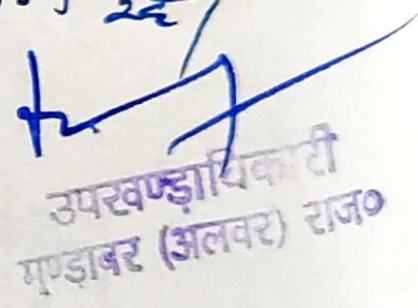 22
उपखण्ड़ाधिकारी
मुण्ड़ावर (अलवर) राज०